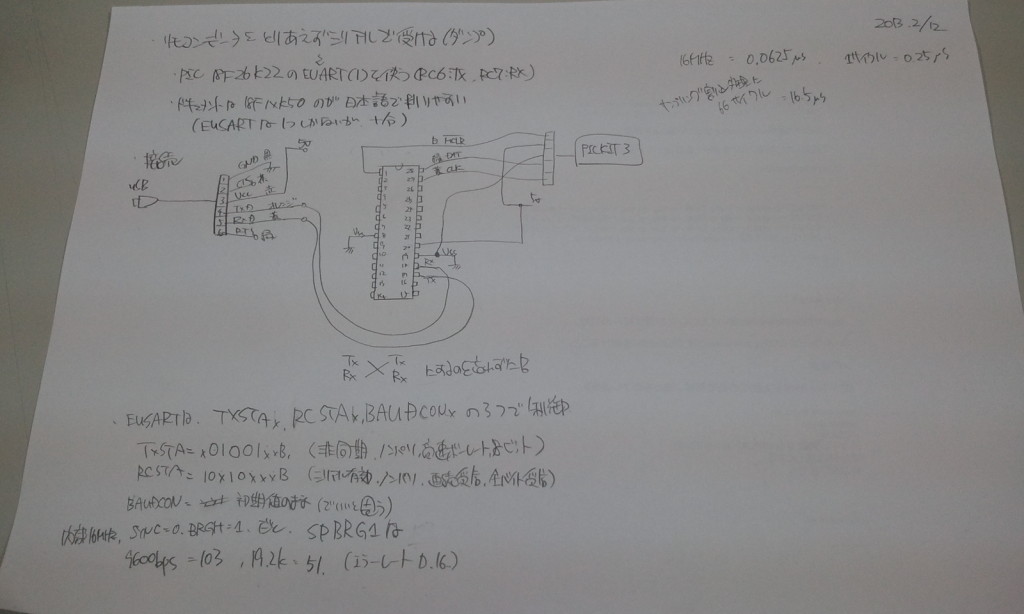 2013.2/12
・リモコンデータをとりあえずシリアルで受ける(ダンプ)
16MHz = 0.0625μs. 1サイクル = 0.25μs
・PIC 18F26K22のEUART(1)を使う(RC6:TX, RC7:RX)
66サイクル = 16.5μs
・ドキュメントは18F1XK50のが日本語で判りやすい
(EUSARTは1つしかないが、十分)
・接続
USB
1 GND 黒
2 CTS 茶
3 Vcc 赤
4 TXD オレンジ
5 RXD 黄
6 RTS 緑
5v
MCLR
DAT
CLK
PICKIT3
5v
Vss
Vss
RX
TX
Tx Tx
Rx Rx
とするのを忘れずに
・EUSARTは、TXSTAx, RCSTAx, BAUDCONxの3つで制御
TXSTA = x01001xxB, (非同期, ノンパリ, 高速ボーレート, 8ビット)
RCSTA = 10x10xxxB (シリアル有効, ノンパリ, 連続受信, 全バイト受信)
BAUDCON = 初期値のまま(でいいと思う)
内蔵16MHz, SYNC=0. BRGH=1. だと、SPBRG1は
9600bps = 103, 19.2k = 51. (エラーレート0.16.)